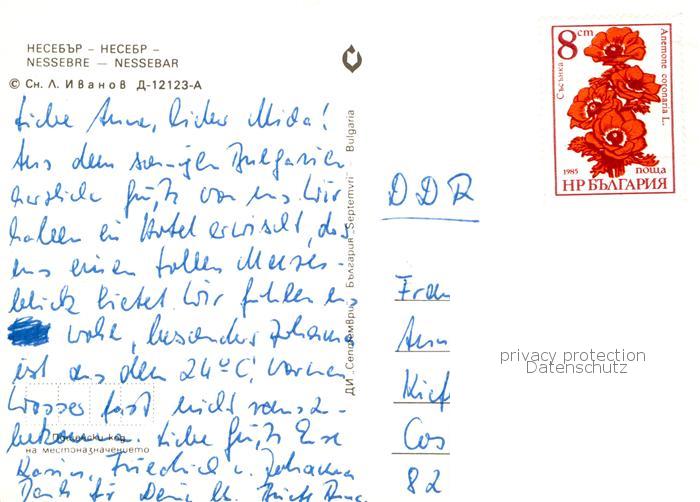 НЕСЕБЪР – НЕСЕБР –
NESSEBRE – NESSEBAR
© Сн. Л. Иванов Д-12123-А
Liebe Anna, lieber Mida!
Aus dem sonnigen Bulgarien
herzliche Grüße von uns. Wir
haben ein Hotel erwischt, das
uns einen tollen Meeres-
blick bietet. Wir fühlen uns
wohl, besonders Johanna
ist aus dem 24°C warmen
Wasser fast nicht rauszu-
bekommen. Liebe Grüße Eure
Karin, Friedrich u. Johanna
Dank für
Пощенски код
на местоназначението
ДИ „Септември“ България „Septemvri“ – Bulgaria
8 cm
Съсънка
Anemone coronaria L.
1985 поща
НР БЪЛГАРИЯ
DDR
Frau
Ann
Kief
Cos
82
privacy protection
Datenschutz